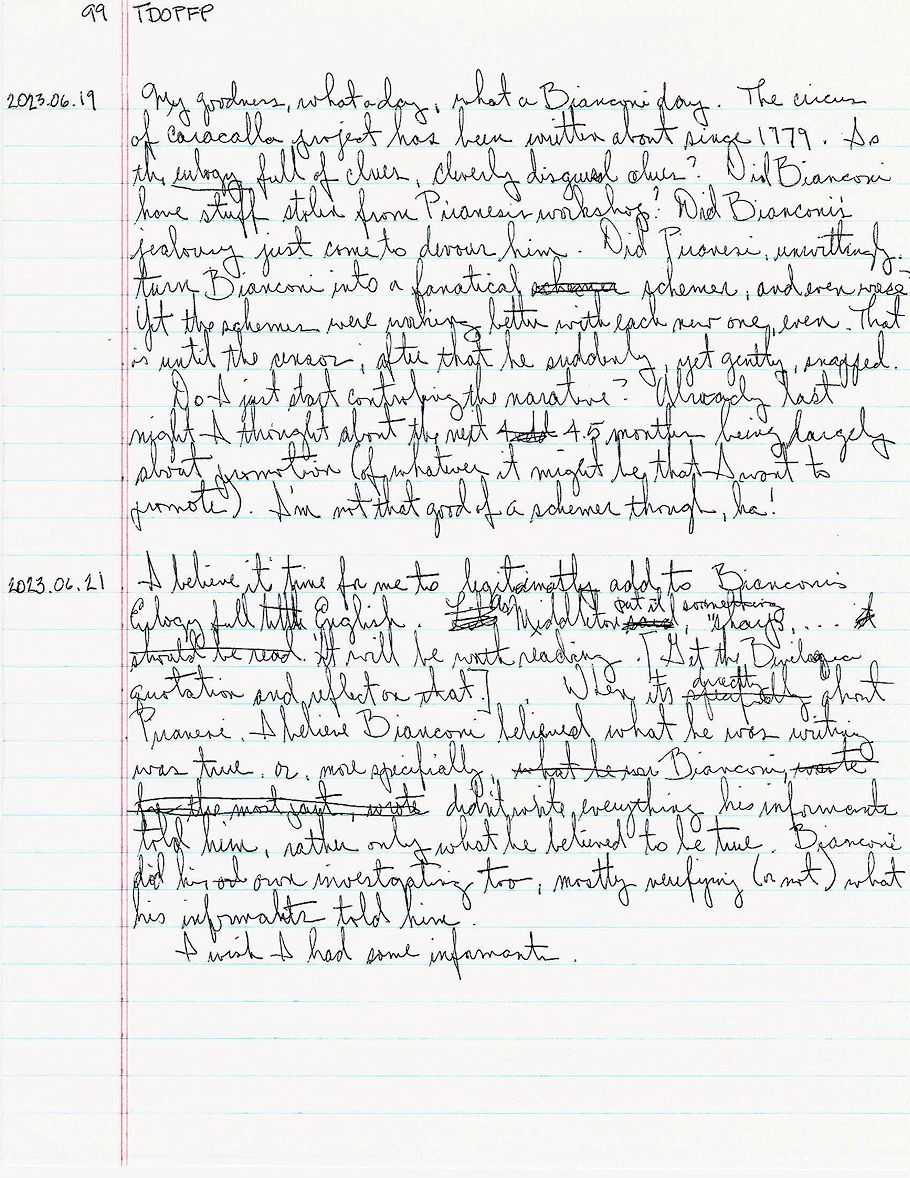 99 TDOPFP
2023.06.19 My goodness, what a day, what a Bianconi day. The circus
of caracalla project has been written about since 1779. Is
the eulogy full of clues, cleverly disguised clues? Did Bianconi
have stuff stolen from Piranesi's workshop? Did Bianconi's
jealousy just come to devour him. Did Piranesi, unwittingly,
turn Bianconi into a fanatical schemer, and even worse?
Yet the schemes were working better with each new one, even. That
is until the censor; after that he suddenly, yet gently, snapped.
Do I just start controlling the narative? Already last
night I thought about the next 4.5 months being largely
about promotion (of whatever it might be that I want to
promote). I'm not that good of a schemer though, ha!
2023.06.21 I believe it time for me to legitamatly add to Bianconi's
Eulogy full English. As Middleton put it, something
should be read. It will be worth reading. [Get the
quotation and reflect on that]. When its directly about
Piranesi. I believe Bianconi believed what he was writing
was true, or, more specifially, what he Bianconi, wrote
for the most part, wrote didn't write everything his informants
told him, rather only what he believed to be true. Bianconi
did his own investigating too, mostly verifying (or not) what
his informants told him.
I wish I had some informants.